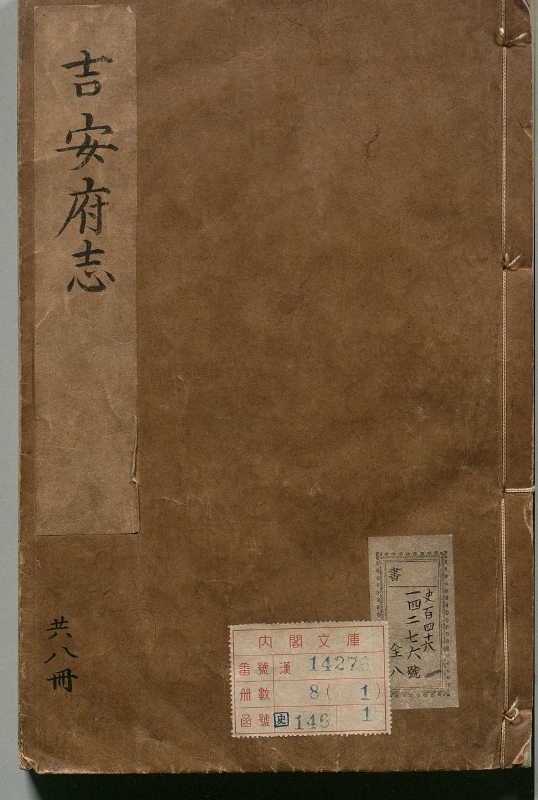 吉安府志
共八冊
書
史百四十六
一四二七六號
全八
内閣文庫
番號 漢 14276
册數 8(1)
函號 史 146 1